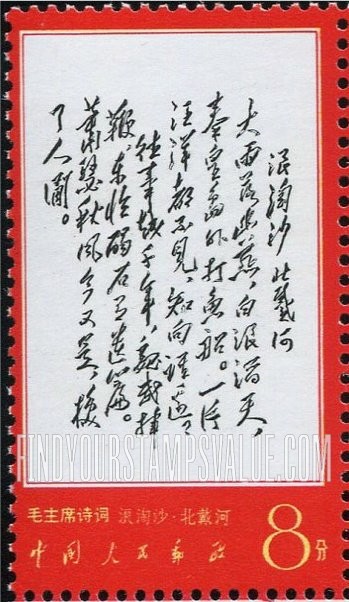 浪淘沙 北戴河
大雨落幽燕，白浪滔天，
秦皇岛外打鱼船。一片
汪洋都不见，知向谁边？
往事越千年，魏武挥
鞭，东临碣石有遗篇。
萧瑟秋风今又是，换
了人间。
FINDYOURSTAMPSVALUE.COM
毛主席诗词 浪淘沙·北戴河
中国人民邮政
8分